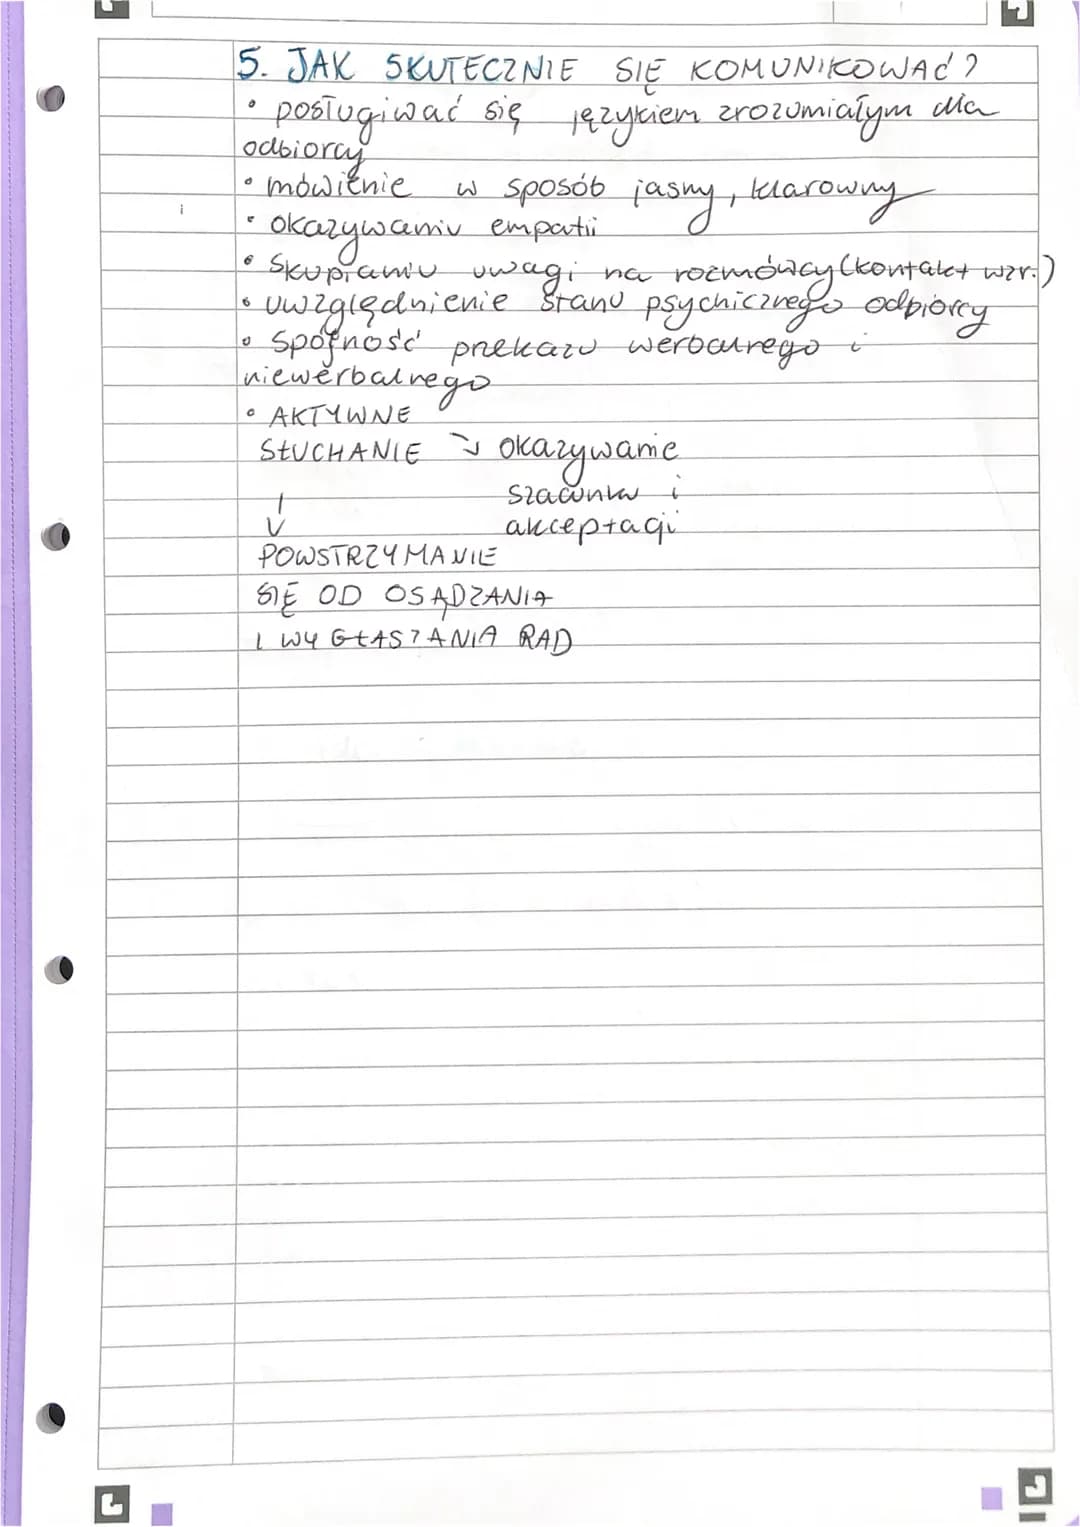 5. JAK SKUTECZNIE SIĘ KOMUNIKOWAĆ?
• posługiwać się językiem zrozumiałym dla
odbiorcy
• mówienie w sposób jasny, klarowny
• okazywaniu empatii
• Skupianiu uwagi na rozmówcy (kontakt wzr.)
• uwzględnienie stanu psychicznego odbiorcy
• Spójność przekazu werbalnego i
niewerbalnego
• AKTYWNE
SŁUCHANIE ↘ okazywanie
szacunku i
akceptacji
↓
POWSTRZYMANIE
SIĘ OD OSĄDZANIA
I WYGŁASZANIA RAD